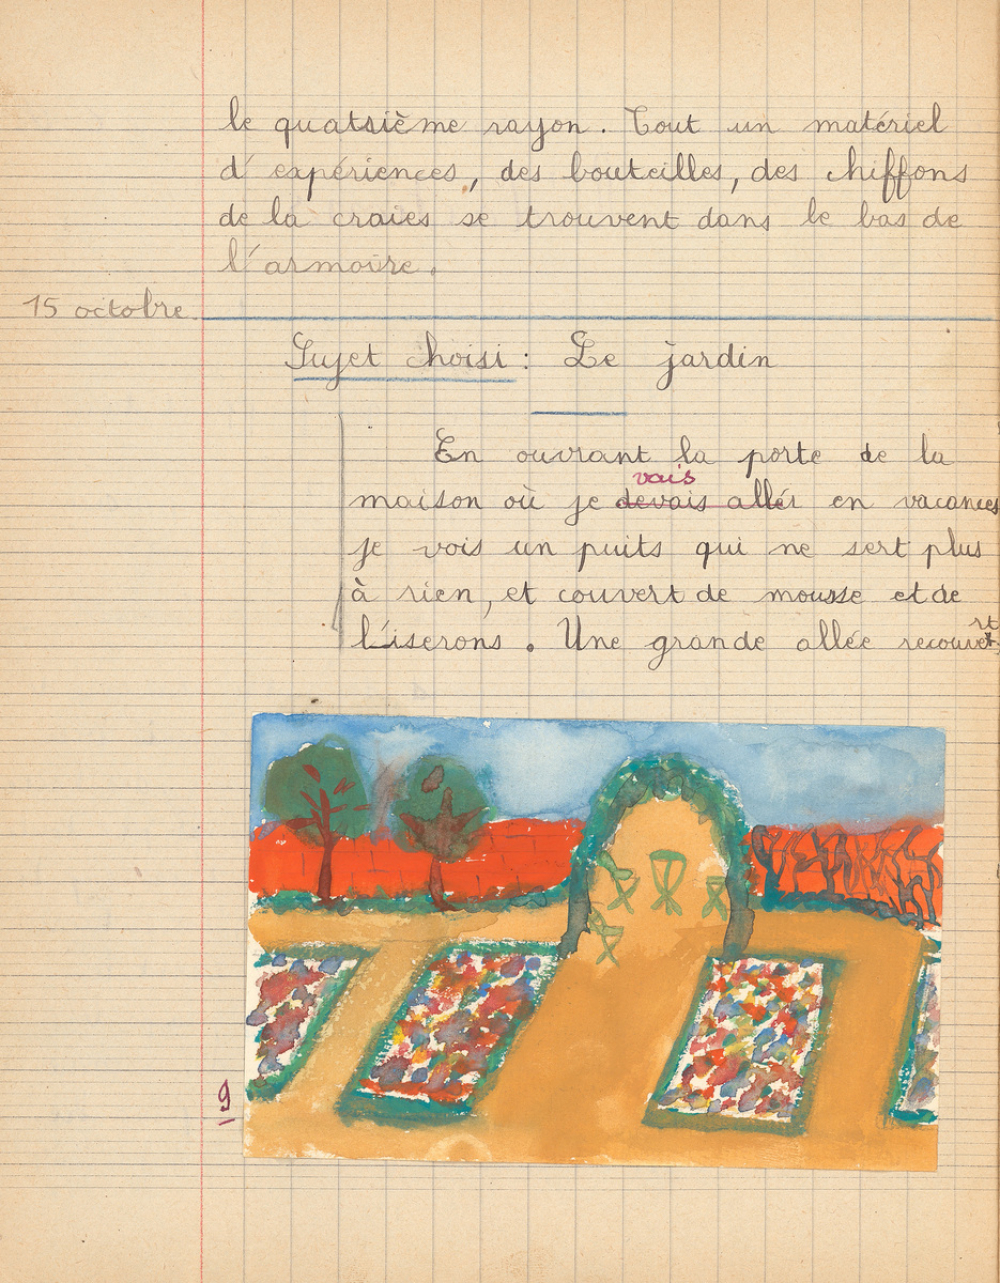 le quatrième rayon. Tout un matériel
d'expériences, des bouteilles, des chiffons
de la craies se trouvent dans le bas de
l'armoire.
15 octobre
Sujet choisi : Le jardin
En ouvrant la porte de la
vais
maison où je devais allér en vacances
je vois un puits qui ne sert plus
à rien, et couvert de mousse et de
l'iserons. Une grande allée recouvert
9